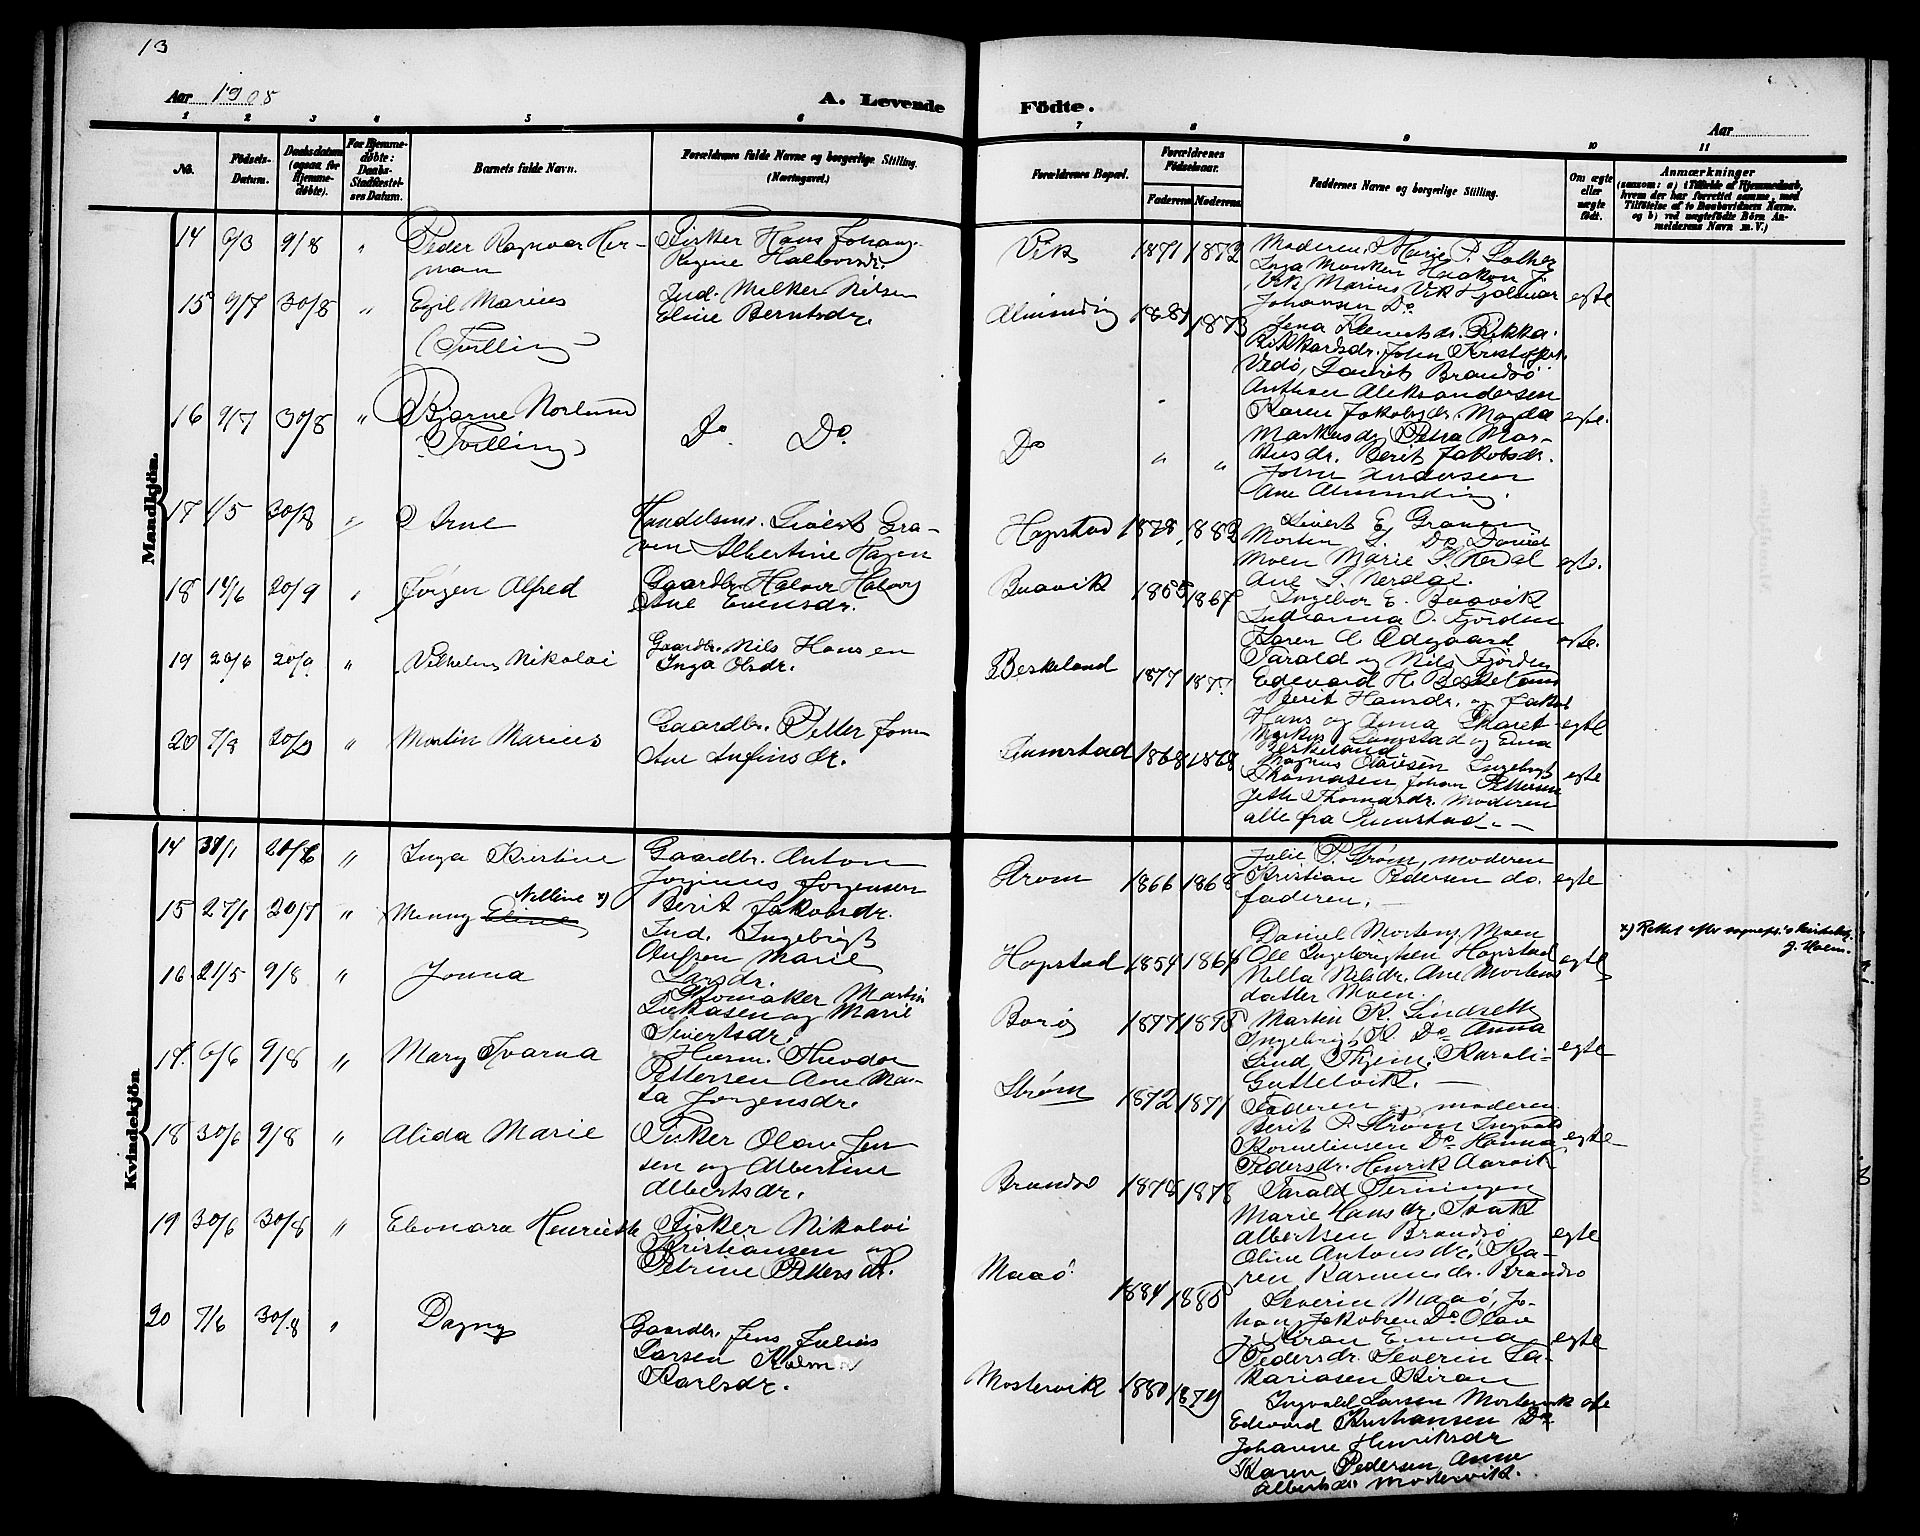 13
Aar 1908
A. Levende
Födte.
Aar
1 2 3 4 5 6 7 8 9 10 11
No.
Födsels-Datum.
Daabsdatum (ogsaa for Hjemmedöbte).
For Hjemmedöbte: Daabs-Stadfæstelses Datum.
Barnets fulde Navn.
Forældrenes fulde Navne og borgerlige Stilling.
(Næringsvei.)
Forældrenes Bopæl.
Forældrenes Födselsaar.
Faderens Moderens
Faddernes Navne og borgerlige Stilling.
Om ægte eller uægte födt.
Anmærkninger
(saasom: a) i Tilfælde af Hjemmedaab,
hvem der har forrettet samme, med
Tilföielse af to Daabsvidners Navne.
og b) ved uægtefödte Börn An-
melderens Navn m. V.)
Mandkjön.
14 6/3 9/8 " Peder Ragnvar Her-
man
Fisker Hans Johans.
Regine Halvorsdr.
Vik 1871 1872
Moderen,
Inga Haakon J.
Vik Marius Vik Hjalmar
Johansen Do
egte
15 9/7 30/8 " Egil Marius
(Tvilling)
Ind. Melker Nilsen
Eline Berntsdr.
Almending 1881 1873
Lena Klemetsdr. Rikka
Rikkardsdr. John Kristoffer
Vedø, Laurits Brandsø
Anthon Aleksandersen
16 9/7 30/8 " Bjarne Norlund
(Tvilling)
Do. Do.
Do " "
Karen Jakobsdr. Magda
Markusdr. Petra Mar-
kusdr. Berit Jakobsdr.
Johan Andersen
Ane Almending.
egte.
17 1/5 30/8 " Arne
Handelsm. Sivert Gra-
ven Albertine Hagen
Hopstad 1878 1882
Sivert E. Graven
Morten S. Do Daniel
Moen Marie S. Nerdal
Ane S. Nerdal.
egte.
18 14/6 20/9 " Jørgen Alfred
Gaardbr. Halvor Halvors
Ane Evensdr.
Buavik 1865 1867
Ingebor E. Buavik
Indianna O. Fjorden
Karen O. Odegaard
Tarald og Nils Fjorden
egte.
19 26/6 20/9 " Vilhelm Nikolai
Gaardbr. Nils Hansen
Inga Olsdr.
Beskeland 1877 1877
Edevard H. Beskeland
Berit Hansdr. og Jakob
Hans og Anna
Markus og Emma
Beskeland
egte
20 7/8 20/9 " Martin Marius
Gaardbr. Petter Jonn
Ane Anfinsdr.
1868 1868
Magnus Olaisen Ingebrigt
Thomasen, Johan Pettersen
Jette Thomasdr. Moderen
alle fra
egte
Kvindekjön
14 31/1 20/6 " Inga Kristine
Gaardbr. Anton
Jorginus Jorgensen
Berit Jakobsdr.
Strom 1866 1868
Julie P. Strøm, moderen
Kristian Pedersen do.
faderen.
egte
15 27/1 20/7 " Menny Eline Nelline x)
Ind. Ingebrigt
Olufsen Marie
Larsdr.
Hopstad 1854 1864
Daniel Mortens. Moen
Ole Ingebrigtsen Hopstad
Nella Nilsdr. Ane Mortens
datter Moen.
egte
x) Rettet efter sognepr.s kirkebog.
J. Holm.
16 21/5 9/8 " Jonna
Skomaker Martin
Lukasen og Marie
Sivertsdr.
Borø 1877 1875
Martin K. Lindseth
Ingebrigt K. Do Anna
Lind, Karoli-
Guttelvik.
egte
17. 6/6 9/8 " Mary Tvarna
Husm. Theodor
Pettersen Ane Mar-
ta Jorgensdr.
Strøm 1872 1871
Faderen og moderen
Berit P. Strøm Ingvald
Kornelinsen Do Hanna
Pedersdr. Henrik Aarvik
egte
18 30/6 9/8 " Alida Marie
Fisker Olav Jen-
sen og Albertine
Albertsdr.
Brandsø 1878 1878
Tarald Terningen
Marie Hansdr. Isak
Albertsen Brandsø
Oline Antonsdr. Ka-
ren Rasmusdr. Brandsø
egte
19 30/6 30/8 " Eleonora Henriette
Fisker Nikolai
Kristiansen og
Petrine Pettersdr.
Maaø 1884 1885
Severin Maaø, Jo-
han Jakobsen Do Olav
Kiran Emma
Pedersdr. Severin Sa-
kariasen Kiran
egte
20 7/6 30/8 " Dagny
Gaardbr. Jens Julius
Larsen
Karlsdr.
Mostervik 1880 1879
Ingvald Larsen Mostervik
Edevard Kristiansen Do
Johanne Henriksdr
Karen Pedersen, Anne
Albertsdr. Mostervik.